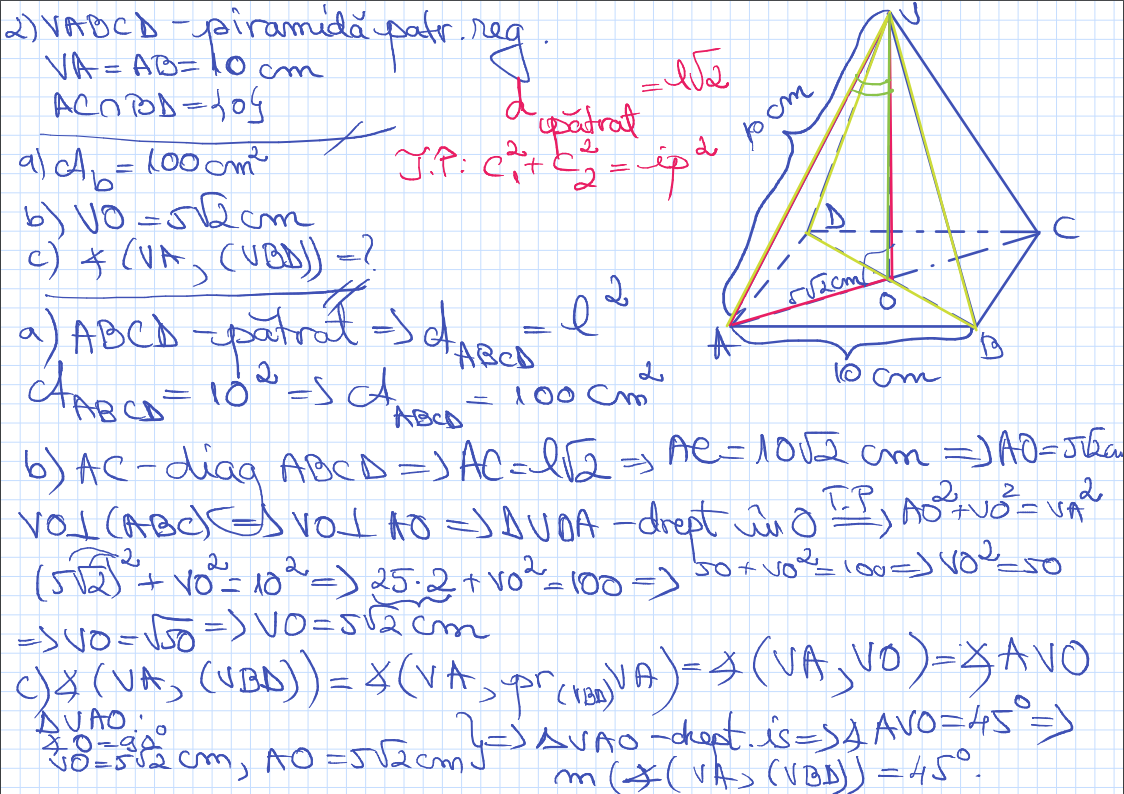 2) VABCD - piramidă patr. reg.
VA = AB = 10 cm
AC∩BD = {O}
a) A_b = 100 cm²
b) VO = 5√2 cm
c) ∢(VA, (VBD)) = ?
d pătrat = l√2
T.P: C₁² + C₂² = ip²
V
10 cm
D
C
5√2 cm
O
A
B
10 cm
a) ABCD - pătrat => A_ABCD = l²
A_ABCD = 10² => A_ABCD = 100 cm²
b) AC - diag ABCD => AC = l√2 => AC = 10√2 cm => AO = 5√2 cm
VO⊥(ABC) <=> VO⊥AO => ΔVOA - drept în O T.P => AO² + VO² = VA²
(5√2)² + VO² = 10² => 25·2 + VO² = 100 => 50 + VO² = 100 => VO² = 50
=> VO = √50 => VO = 5√2 cm
c) ∢(VA, (VBD)) = ∢(VA, pr_(VBD) VA) = ∢(VA, VO) = ∢AVO
ΔVAO:
∢O = 90°
VO = 5√2 cm, AO = 5√2 cm } => ΔVAO - drept. is => ∢AVO = 45° =>
m(∢(VA, (VBD)) = 45°.